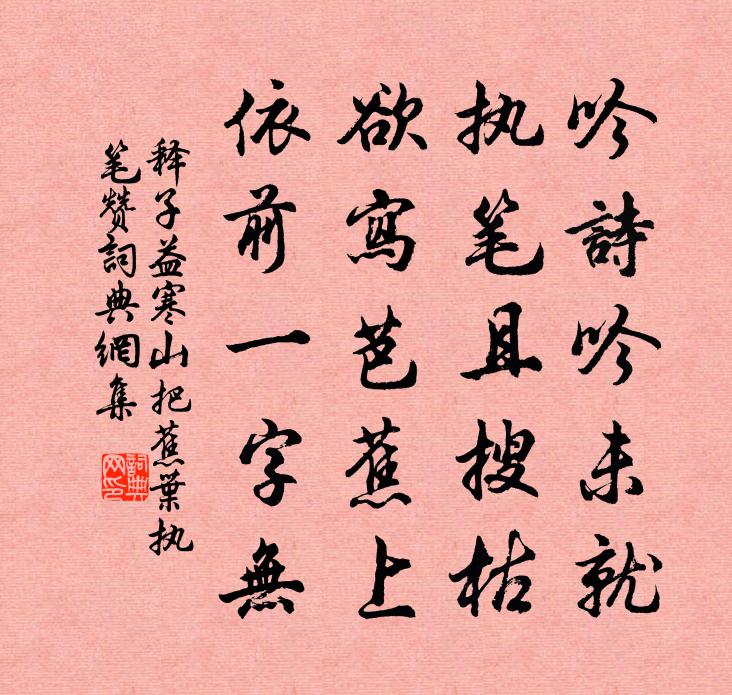 吟詩吟未就
执笔且搜枯
欲寫芭蕉上
依前一字無
释子益寒山把蕉葉执
笔赞詞典網集
詞典网印